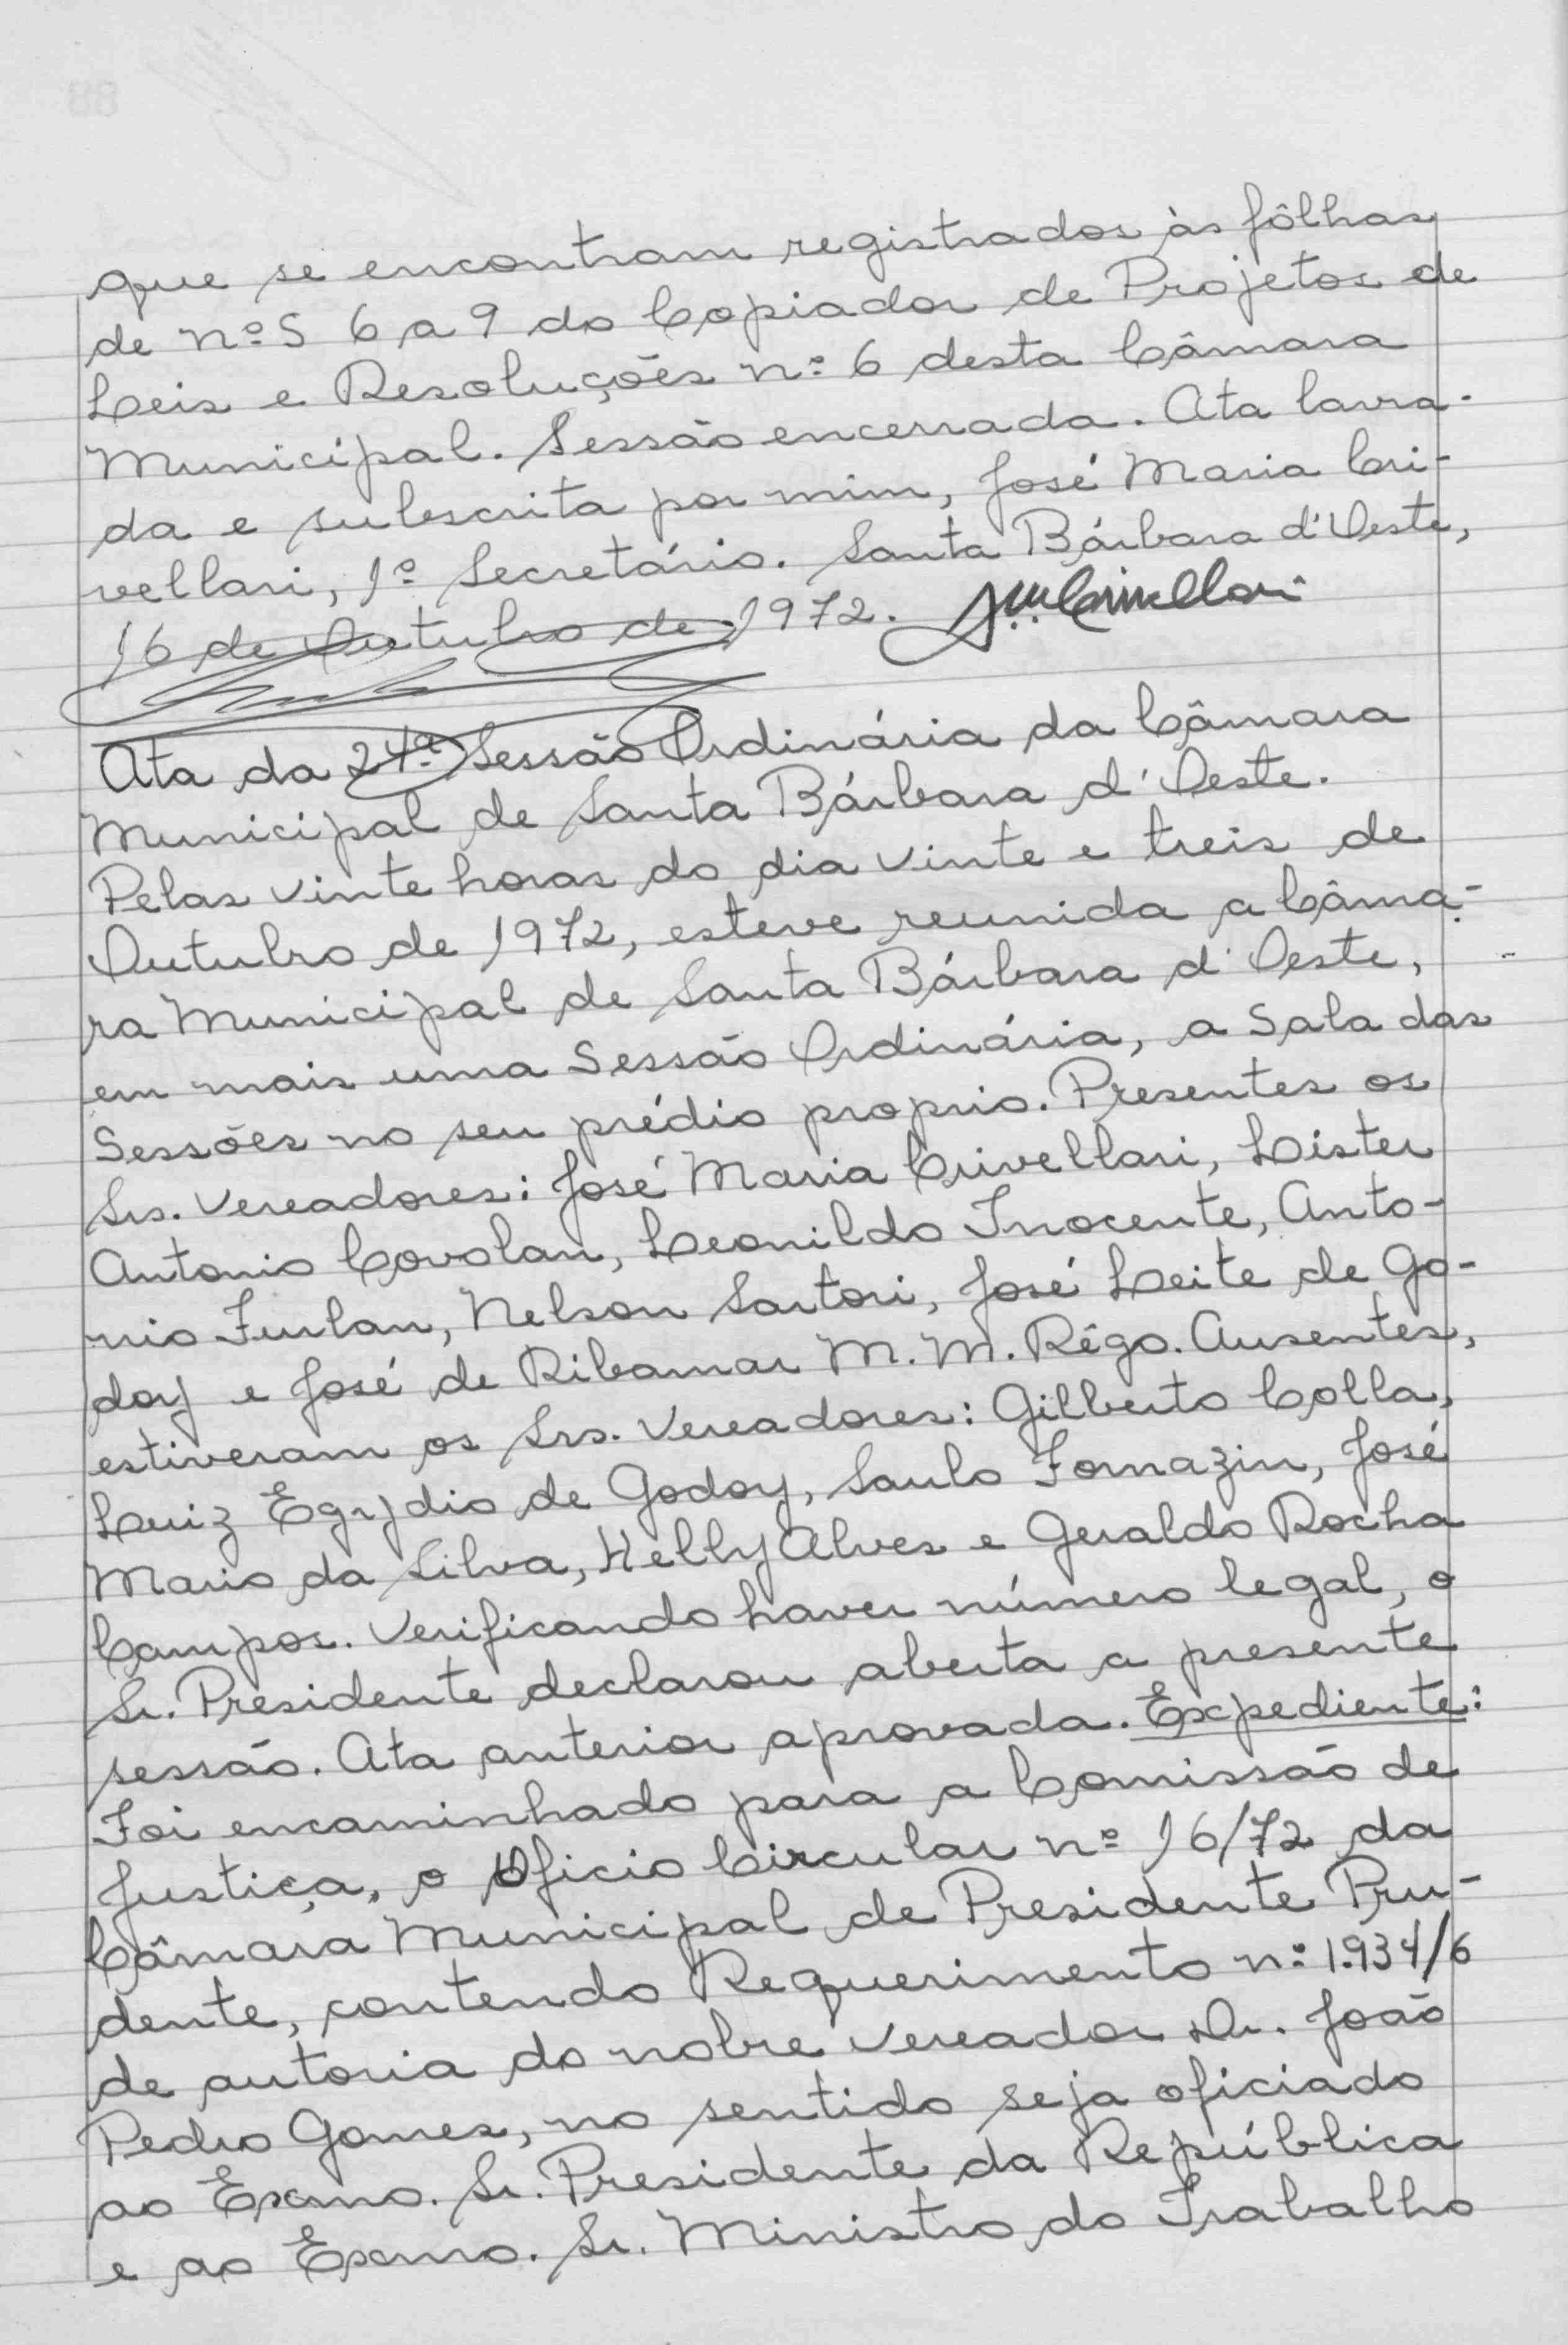 que se encontram registrados às fôlhas
de nºs 6 a 9 do Copiador de Projetos de
Leis e Resoluções nº 6 desta Câmara
Municipal. Sessão encerrada. Ata lavra-
da e subscrita por mim, José Maria Cri-
vellari, 1º Secretário. Santa Bárbara d'Oeste,
16 de Outubro de 1972. JMCrivellari
Ata da 24ª Sessão Ordinária da Câmara
Municipal de Santa Bárbara d'Oeste.
Pelas vinte horas do dia vinte e treis de
Outubro de 1972, esteve reunida a Câma-
ra Municipal de Santa Bárbara d'Oeste,
em mais uma Sessão Ordinária, a Sala das
Sessões no seu prédio proprio. Presentes os
Srs. Vereadores: José Maria Crivellari, Lister
Antonio Covolan, Leonildo Inocente, Anto-
nio Furlan, Nelson Sartori, José Leite de Go-
doy e José de Ribamar M. M. Rêgo. Ausentes,
estiveram os Srs. Vereadores: Gilberto Colla,
Luiz Egydio de Godoy, Saulo Fornazin, José
Mario da Silva, Kelly Alves e Geraldo Rocha
Campos. Verificando haver número legal, o
Sr. Presidente declarou aberta a presente
sessão. Ata anterior aprovada. Expediente:
Foi encaminhado para a Comissão de
Justiça, o Oficio Circular nº 16/72 da
Câmara Municipal de Presidente Pru-
dente, contendo Requerimento nº 1.934/6
de autoria do nobre vereador Dr. João
Pedro Gomes, no sentido seja oficiado
ao Exmo. Sr. Presidente da República
e ao Exmo. Sr. Ministro do Trabalho